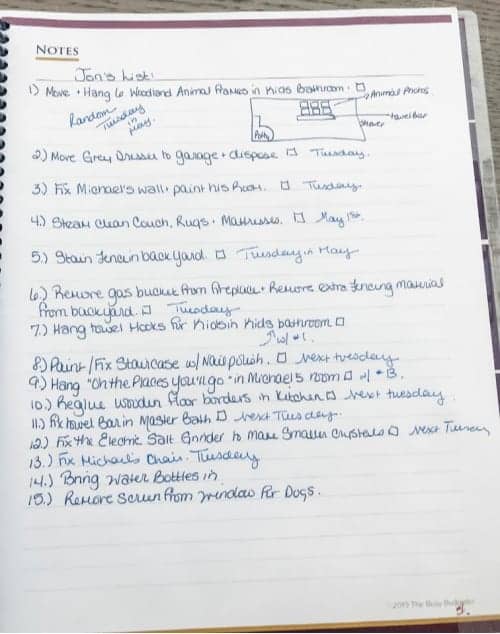 NOTES
Jon's List:
1) Move + Hang 6 Woodland Animal Frames in Kids Bathroom. □
Random Tuesday in May.
Animal Photos
towel bar
Potty
2.) Move Grey Dresser to garage + dispose □ Tuesday.
3.) Fix Michael's wall + paint his Room. □ Tuesday.
4.) Steam Clean Couch, Rugs + Mattresses. □ May 1st.
5.) Stain fence in back yard. □ Tuesday in May
6.) Remove gas bucket from fireplace + Remove extra fencing material
from backyard. □ Tuesday
7.) Hang towel Hooks for Kids in Kids bathroom □
↑ w/ #1.
8.) Paint/Fix Staircase w/ Nail polish. □ Next tuesday
9.) Hang "Oh the Places you'll go" in Michael's room □ w/ #3.
10.) Reglue wooden floor borders in kitchen □ Next tuesday
11.) Fix towel Bar in Master Bath □ Next Tuesday.
12.) Fix the Electric Salt Grinder to make Smaller Crystals □ Next Tuesday
13.) Fix Michael's Chair. Tuesday
14.) Bring Water Bottles in
15.) Remove Screen from window for Dogs.
2019 The Busy Budgeter